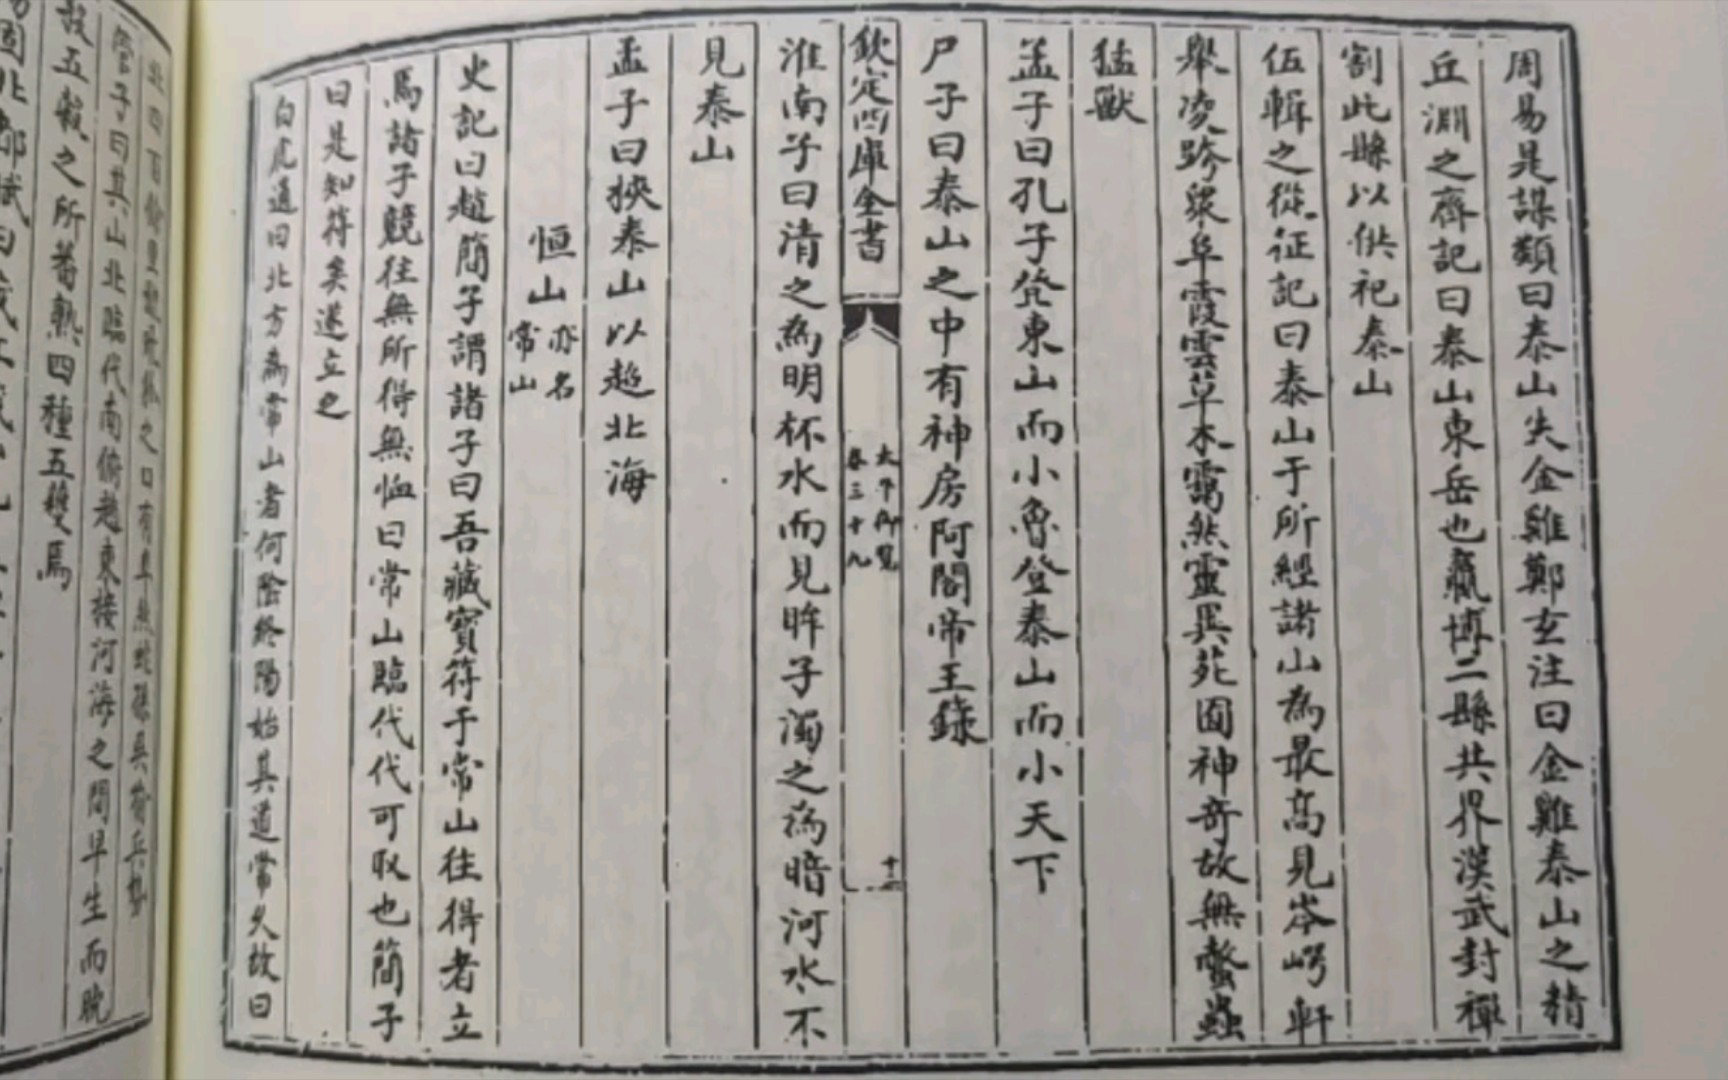 周易是謀類曰泰山失金雞鄭玄注曰金雞泰山之精
丘淵之齊記曰泰山東岳也嬴博二縣共界漢武封禪
割此縣以供祀泰山
伍輯之從征記曰泰山于所經諸山為最高見岑崿軒
舉凌跨眾阜霞雲草木靄然靈異苑囿神奇故無螫蟲
猛獸
孟子曰孔子登東山而小魯登泰山而小天下
尸子曰泰山之中有神房阿閣帝王錄
欽定四庫全書
太平御覽
卷三十九
十二
淮南子曰清之為明杯水而見眸子濁之為暗河水不
見泰山
孟子曰挾泰山以超北海
恒山
亦名
常山
史記曰趙簡子謂諸子曰吾藏寶符于常山往得者立
焉諸子競往無所得無恤曰常山臨代代可取也簡子
曰是知符矣遂立之
白虎通曰北方為常山者何陰終陽始其道常久故曰
管子曰其山北臨代南俯趙東接河海之間早生而晚
殺五穀之所蕃熟四種五穫焉